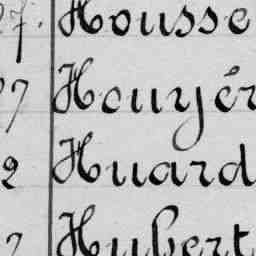 27. Housse
7 Houyér
2 Huard
2 Hubert